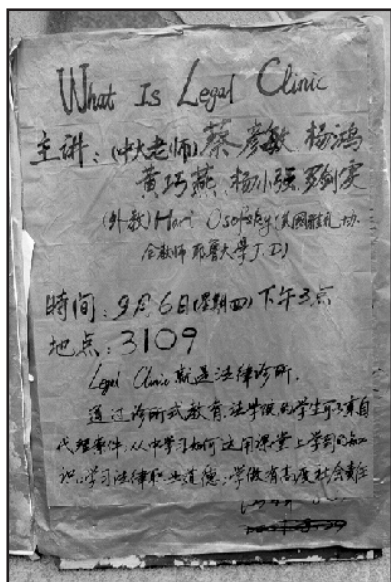 What Is Legal Clinic
主讲：(中大老师)蔡彦敏 杨鸿
黄巧燕、杨小强、罗剑雯
(外教) Hari Osofsky
合教师 耶鲁大學 J.D)
時间：9月6日(星期四)下午3点
地点：3109
Legal Clinic 就是法律诊所，
通过诊所式教育，法学院的学生可亲自
代理案件，从中学习如何运用课堂上学到的知
识，学习法律职业道德，学做有高度社会责任